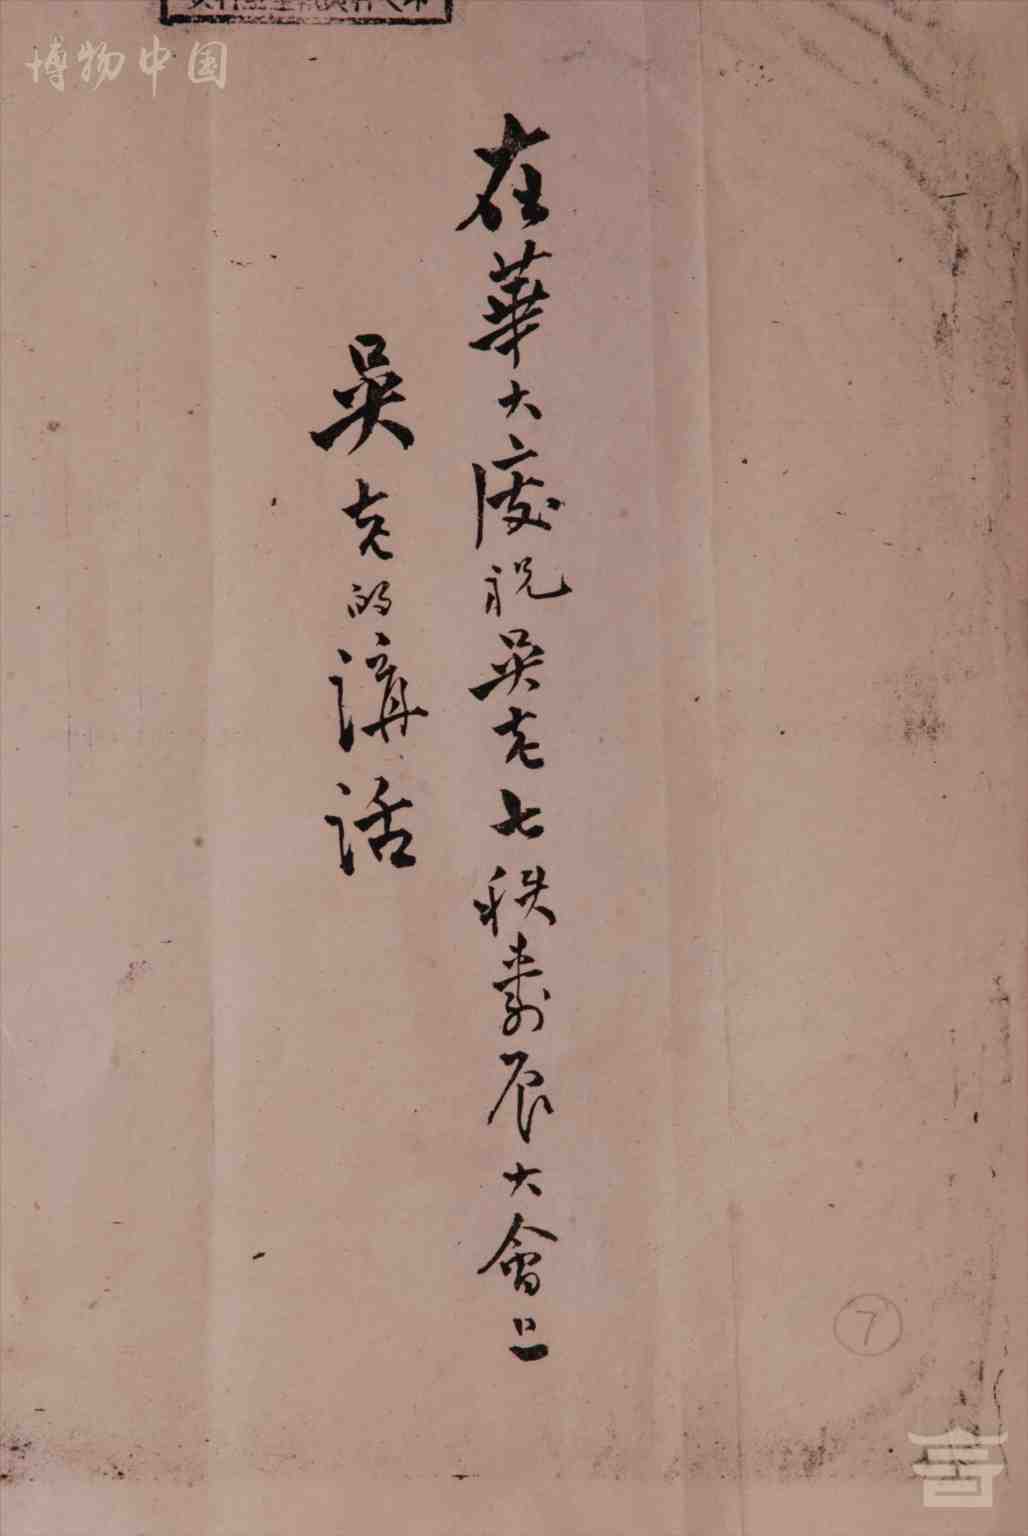 博物中国
在華大慶祝吳老七秩壽辰大會上
吳老的講話
7